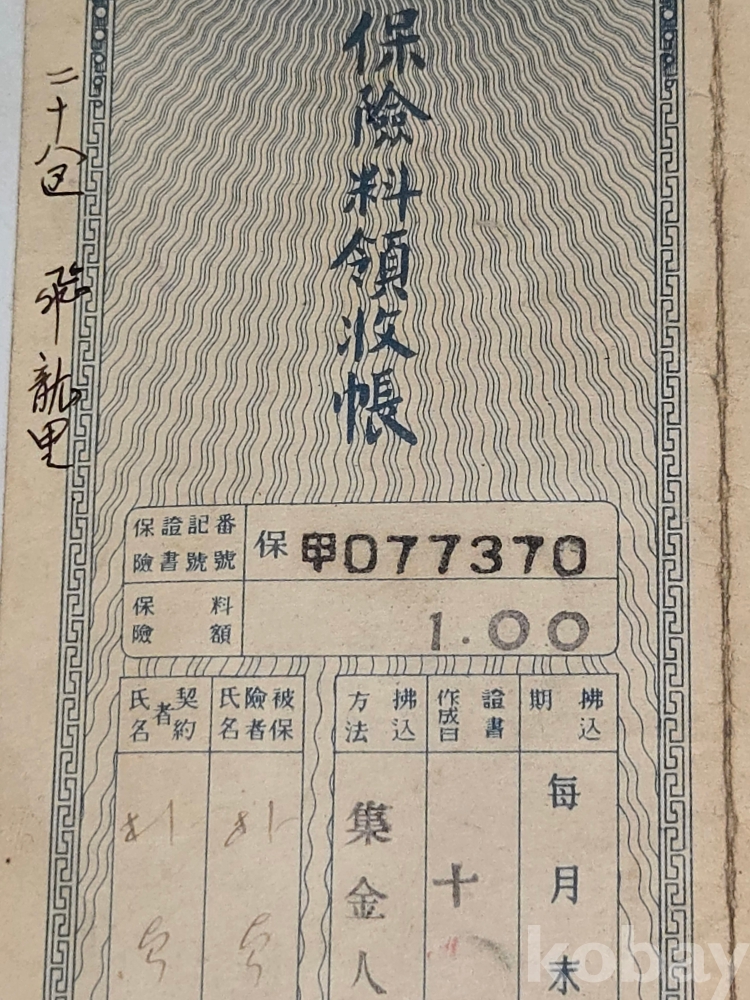 保險料領收帳
二十八 飛龍里
保險證書記號番號
保甲077370
保險料額
1.00
拂込期
每月末
證書作成日
十
拂込方法
集金人
被保險者氏名
朴
契約者氏名
朴
kobay